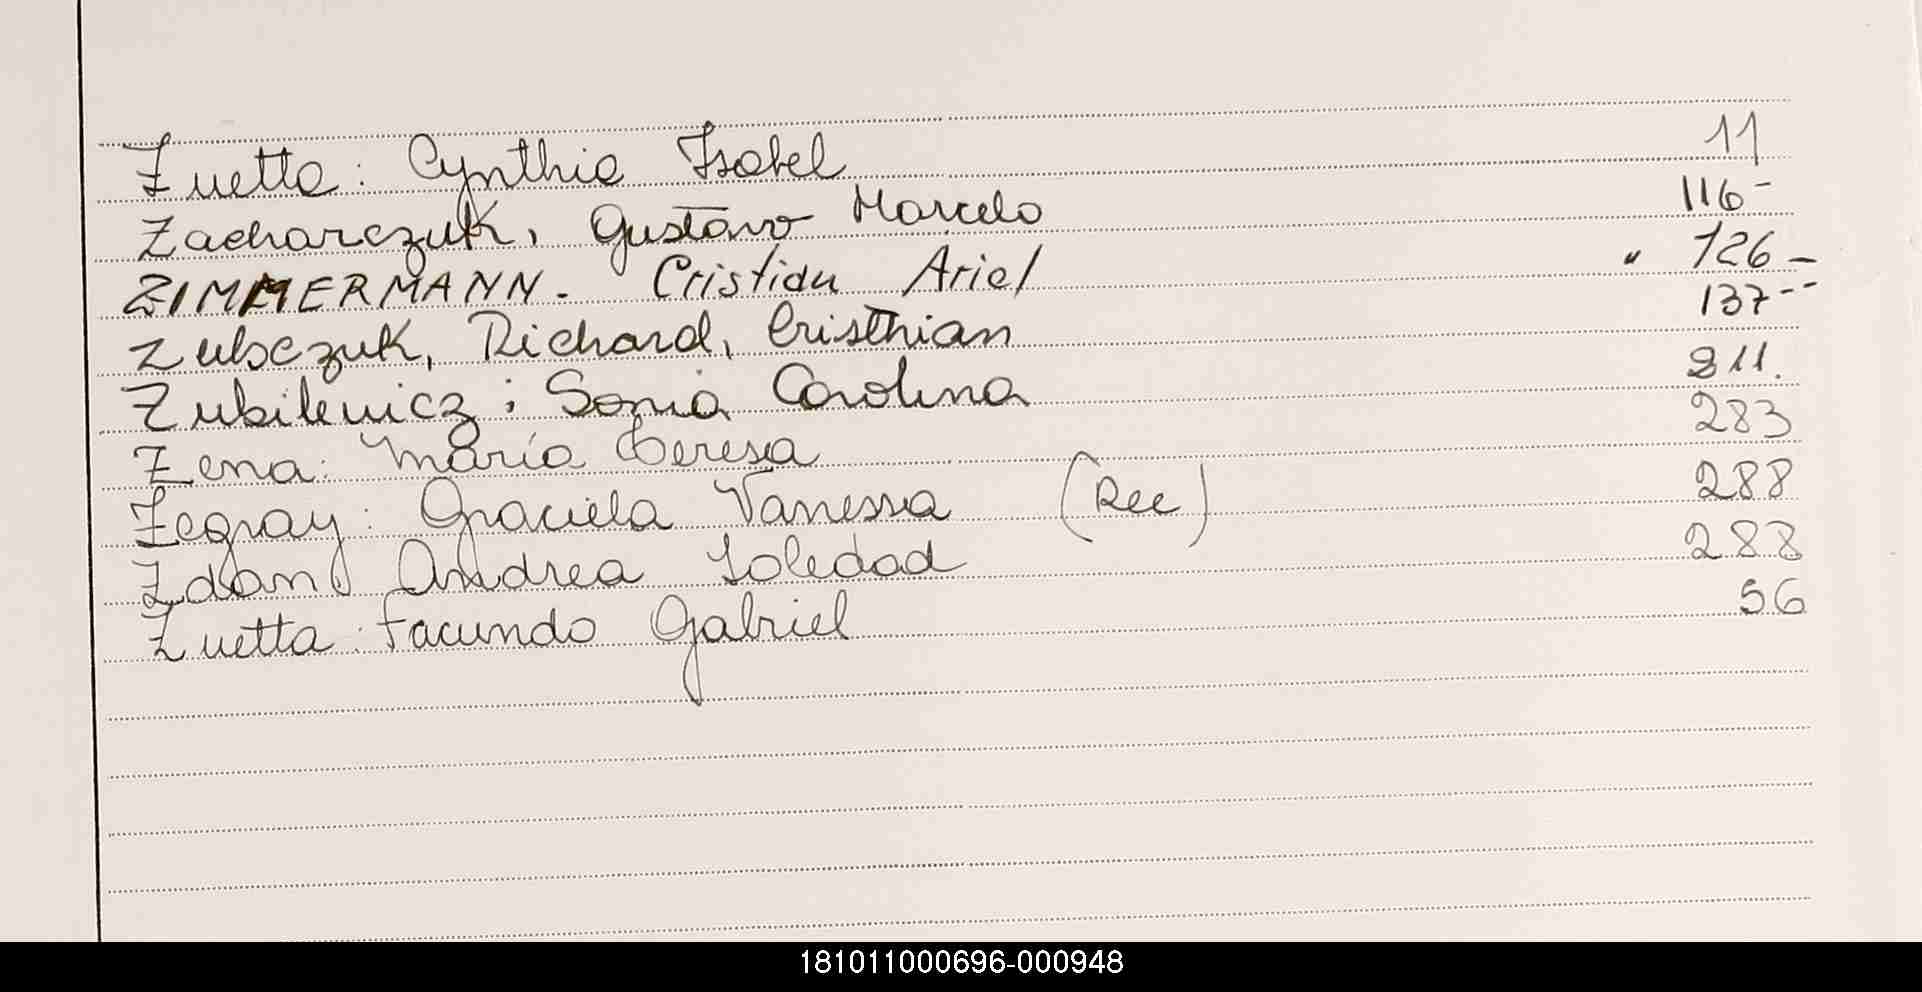 Zuetta: Cynthia Isabel 11
Zacharczuk, Gustavo Marcelo 116-
ZIMMERMANN. Cristian Ariel " 126-
Zubczuk, Richard, Cristhian 137--
Zubilewicz: Sonia Carolina 211.
Zena: María Teresa 283
Zegray: Graciela Vanessa (Rec) 288
Zdan, Andrea Soledad 288
Zuetta: Facundo Gabriel 56
181011000696-000948